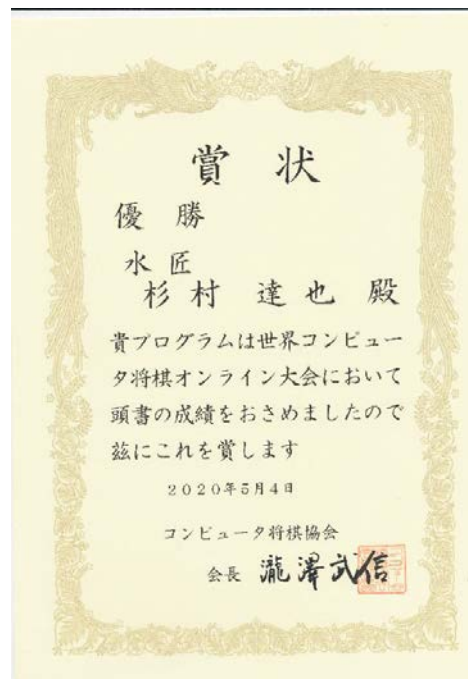 賞状
優勝
水匠
杉村 達也 殿
貴プログラムは世界コンピュー
タ将棋オンライン大会において
頭書の成績をおさめましたので
玆にこれを賞します
2020年5月4日
コンピュータ将棋協会
会長 瀧澤武信